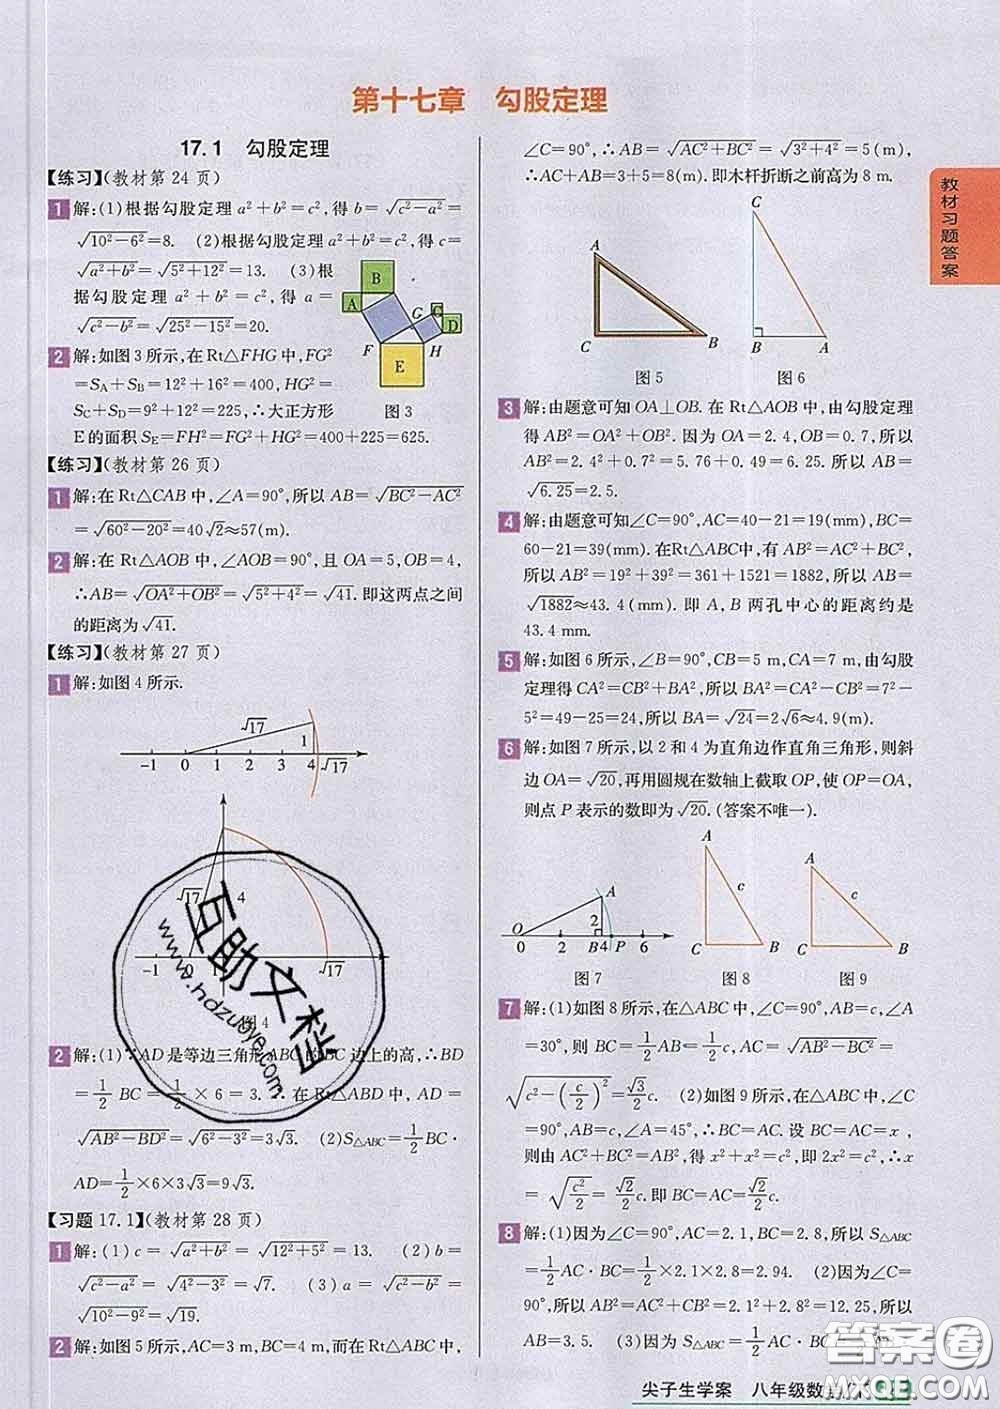 第十七章 勾股定理
17.1 勾股定理
【练习】(教材第 24 页)
1 解:(1)根据勾股定理 a²+b²=c²,得 b=√(c²-a²)=
√(10²-6²)=8. (2)根据勾股定理 a²+b²=c²,得 c
=√(a²+b²)=√(5²+12²)=13. (3)根
据勾股定理 a²+b²=c²,得 a=
√(c²-b²)=√(25²-15²)=20.
2 解:如图 3 所示,在 Rt△FHG 中,FG²
=S_A+S_B=12²+16²=400,HG²=
S_C+S_D=9²+12²=225,∴大正方形
E 的面积 S_E=FH²=FG²+HG²=400+225=625.
A
B
C
D
E
F
G
H
图 3
【练习】(教材第 26 页)
1 解:在 Rt△CAB 中,∠A=90°,所以 AB=√(BC²-AC²)
=√(60²-20²)=40√2≈57(m).
2 解:在 Rt△AOB 中,∠AOB=90°,且 OA=5,OB=4,
∴AB=√(OA²+OB²)=√(5²+4²)=√41. 即这两点之间
的距离为√41.
【练习】(教材第 27 页)
1 解:如图 4 所示.
√17
1
-1 0 1 2 3 4 √17
√17 4
-1 0 1 √17
图 4
2 解:(1)∵AD 是等边三角形 ABC 的 BC 边上的高,∴BD
=1/2 BC=1/2×6=3. ∴在 Rt△ABD 中, AD=
√(AB²-BD²)=√(6²-3²)=3√3. (2)S△ABC=1/2 BC·
AD=1/2×6×3√3=9√3.
【习题 17.1】(教材第 28 页)
1 解:(1) c=√(a²+b²)=√(12²+5²)=13. (2) b=
√(c²-a²)=√(4²-3²)=√7. (3) a=√(c²-b²)=
√(10²-9²)=√19.
2 解:如图 5 所示,AC=3 m,BC=4 m,而在 Rt△ABC 中,
∠C=90°,∴AB=√(AC²+BC²)=√(3²+4²)=5(m),
∴AC+AB=3+5=8(m). 即木杆折断之前高为 8 m.
A
C
B
图 5
C
B
A
图 6
3 解:由题意可知 OA⊥OB. 在 Rt△AOB 中,由勾股定理
得 AB²=OA²+OB². 因为 OA=2.4,OB=0.7,所以
AB²=2.4²+0.7²=5.76+0.49=6.25. 所以 AB=
√6.25=2.5.
4 解:由题意可知∠C=90°,AC=40-21=19(mm),BC=
60-21=39(mm). 在Rt△ABC中,有 AB²=AC²+BC²,
所以 AB²=19²+39²=361+1521=1882,所以 AB=
√1882≈43.4(mm). 即 A,B 两孔中心的距离约是
43.4 mm.
5 解:如图 6 所示,∠B=90°,CB=5 m,CA=7 m,由勾股
定理得 CA²=CB²+BA²,所以 BA²=CA²-CB²=7²-
5²=49-25=24,所以 BA=√24=2√6≈4.9(m).
6 解:如图 7 所示,以 2 和 4 为直角边作直角三角形,则斜
边 OA=√20,再用圆规在数轴上截取 OP,使 OP=OA,
则点 P 表示的数即为√20. (答案不唯一).
A
2
O B P
0 2 4 6
图 7
A
c
C B
图 8
A
c
C B
图 9
7 解:(1)如图 8 所示,在△ABC 中,∠C=90°,AB=c,∠A
=30°,则 BC=1/2 AB=1/2 c,AC=√(AB²-BC²)=
√(c²-(c/2)²)=√3/2 c. (2)如图 9 所示,在△ABC 中,∠C
=90°,∠A=45°,∴BC=AC. 设 BC=AC=x,
则由 AC²+BC²=AB²,得 x²+x²=c²,即 2x²=c²,∴x
=√(c²/2)=√2/2 c. 即 BC=AC=√2/2 c.
8 解:(1)因为∠C=90°,AC=2.1,BC=2.8,所以 S△ABC=
1/2 AC·BC=1/2×2.1×2.8=2.94. (2)因为∠C=
90°,所以 AB²=AC²+BC²=2.1²+2.8²=12.25,所以
AB=3.5. (3)因为 S△ABC=1/2 AC·BC
教材习题答案
尖子生学案 八年级数
互助文档
www.hdzuoye.com
答案圈
MXQE.COM